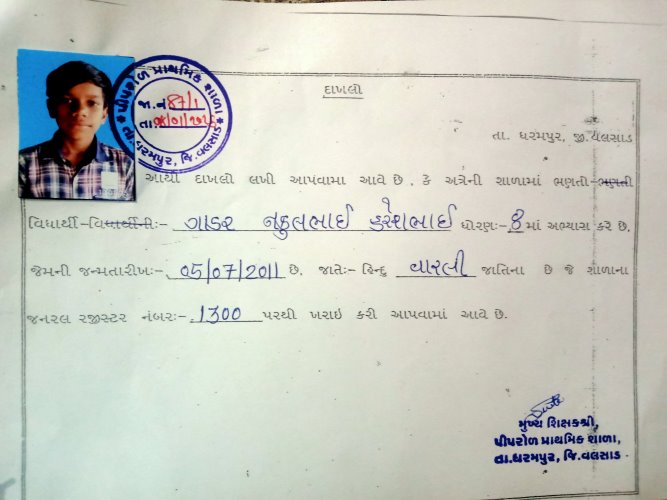 પીપરોળ પ્રાથમિક શાળા
જા.નં 87/1
તા.
તા.ધરમપુર, જિ.વલસાડ
દાખલો
તા. ધરમપુર, જી.વલસાડ
આથી દાખલો લખી આપવામા આવે છે . કે અત્રેની શાળામાં ભણતો-ભણતી
વિધાર્થી-વિધાર્થીની:- ગાડર નકુલભાઈ હરેશભાઈ ધોરણ:- 8 માં અભ્યાસ કરે છે.
જેમની જન્મતારીખ:- 05/07/2011 છે. જાતે:- હિન્દુ વારલી જાતિના છે જે શાળાના
જનરલ રજીસ્ટર નંબર:- 1300 પરથી ખરાઇ કરી આપવામાં આવે છે.
મુખ્ય શિક્ષકશ્રી,
પીપરોળ પ્રાથમિક શાળા,
તા.ધરમપુર, જિ.વલસાડ.